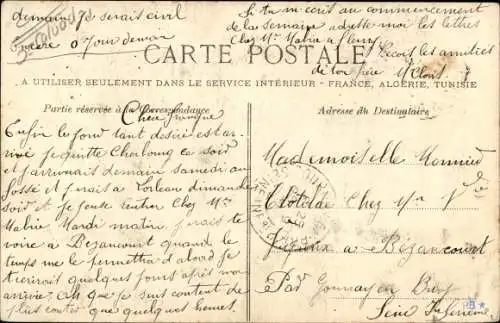 demain je serais civil
encore 0 Jour demain
Si tu m'ecrit au commencement
de la semaine adresse moi les lettres
Chez Mr Mabire a
Recois les amities
de ton père
CARTE POSTALE
A UTILISER SEULEMENT DANS LE SERVICE INTÉRIEUR - FRANCE, ALGÉRIE, TUNISIE
Partie réservée à la Correspondance
Adresse du Destinataire
Chere
Enfin le jour tant desiré est ar
rivé je quitte Cherbourg ce soir
et j'arriverais demain samedi au
fossé et j'irais a dimanche
soir et je pense rentrer Chez Mr
Mabire Mardi matin j'irais te
voire a Bezancourt quand le
temps me le permettra d'abord je
t'ecrirait quelques jours après mon
arrivée Ah que je suis content de
plus conter que quelques heures.
Mademoiselle Monnier
Clotilde Chez Mr Vve
a Bézancourt
Par Gournay en Bray
Seine Inferieure